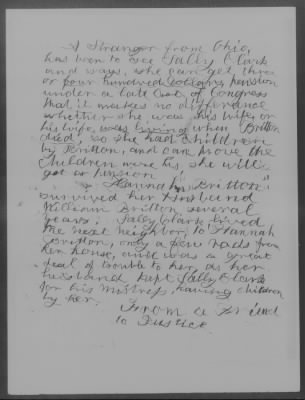 A Stranger from Ohio,
has been to see Sally Clark
and says, she can get three
or four hundred dollars, pension
under a late Act of Congress
that it makes no difference
whether she was his wife, or
his wife, was living when Britton
died, so she had children
by Britton, and can prove the
Children were his, she will
get a pension
Hannah Britton
survived her Husband
William Britton several
years. Sally Clark lived
the next neighbor, to Hannah
Britton, only a few rods from
her house, and was a great
deal of trouble to her, as her
husband kept Sally Clark
for his Mistress, having children
by her.
From a Friend
to Justice.